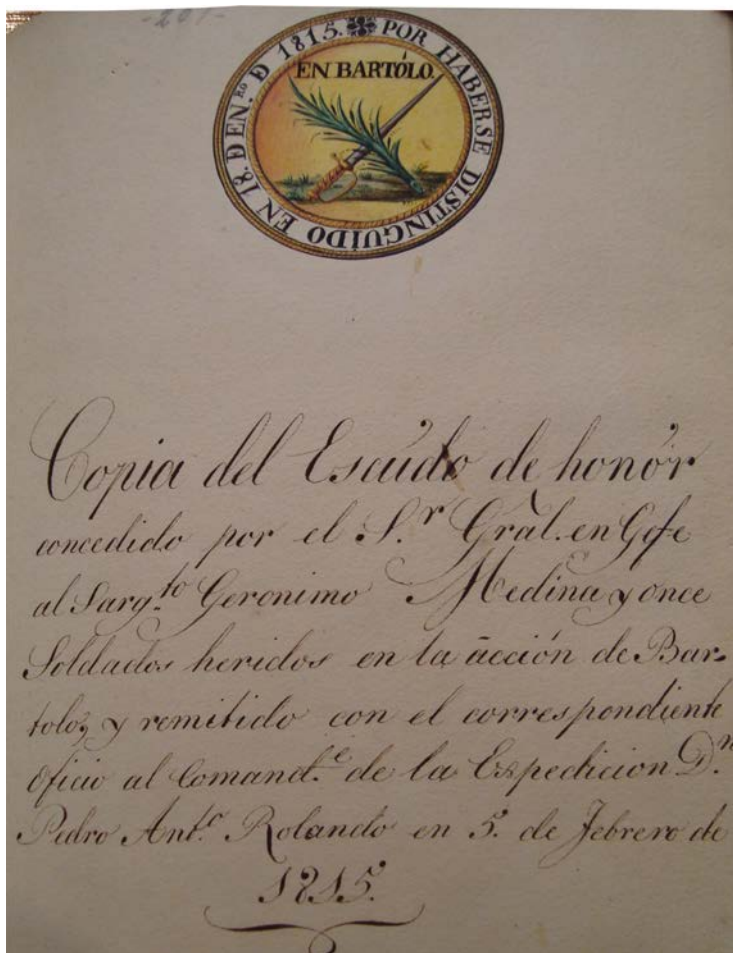 -201-
POR HABERSE DISTINGUIDO EN 18. D EN.ᴿᴼ D 1815.
EN BARTÓLO.
Copia del Escúdo de honór
concedido por el S.ʳ Grãl. en Gefe
al Sarg.ᵗᵒ Geronimo Medina y once
Soldados heridos en la acción de Bar-
tolo, y remitido con el correspondiente
Oficio al Comand.ᵉ de la Expedicion D.ⁿ
Pedro Ant.º Rolando en 5. de Febrero de
1815.